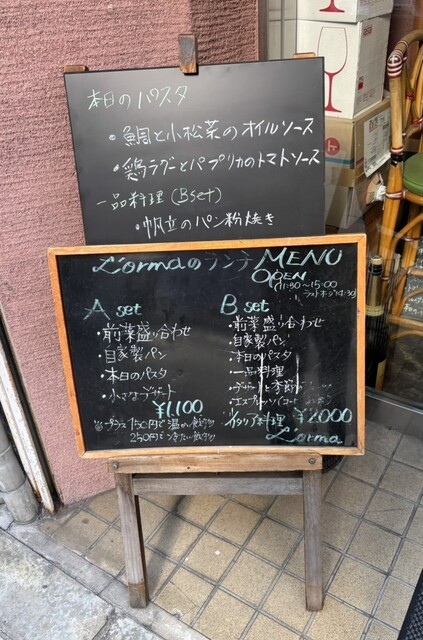 本日のパスタ
・鯛と小松菜のオイルソース
・鶏ラグーとパプリカのトマトソース
一品料理(Bset)
・帆立のパン粉焼き
L'ormaのランチMENU
OPEN
11:30~15:00
ラストオーダー14:30
A set
・前菜盛り合わせ
・自家製パン
・本日のパスタ
・小さなデザート
¥1,100
150円で温かい飲み物
250円で冷たい飲み物
B set
・前菜盛り合わせ
・自家製パン
・本日のパスタ
・一品料理
・デザートと季節
・エスプレッソ
¥2,000
イタリア料理
L'orma